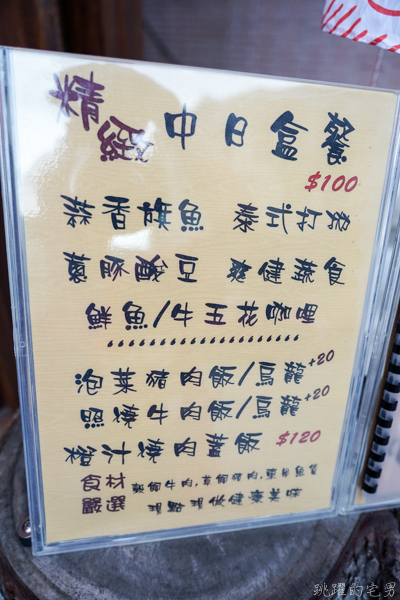 精緻中日盒餐
$100
蒜香旗魚 泰式打拋
蔥酥酸豆 爽健蔬食
鮮魚/牛五花咖哩
泡菜豬肉飯/烏龍+20
照燒牛肉飯/烏龍+20
橙汁燒肉蓋飯 $120
食材
嚴選
現點現做健康美味
跳躍的宅男